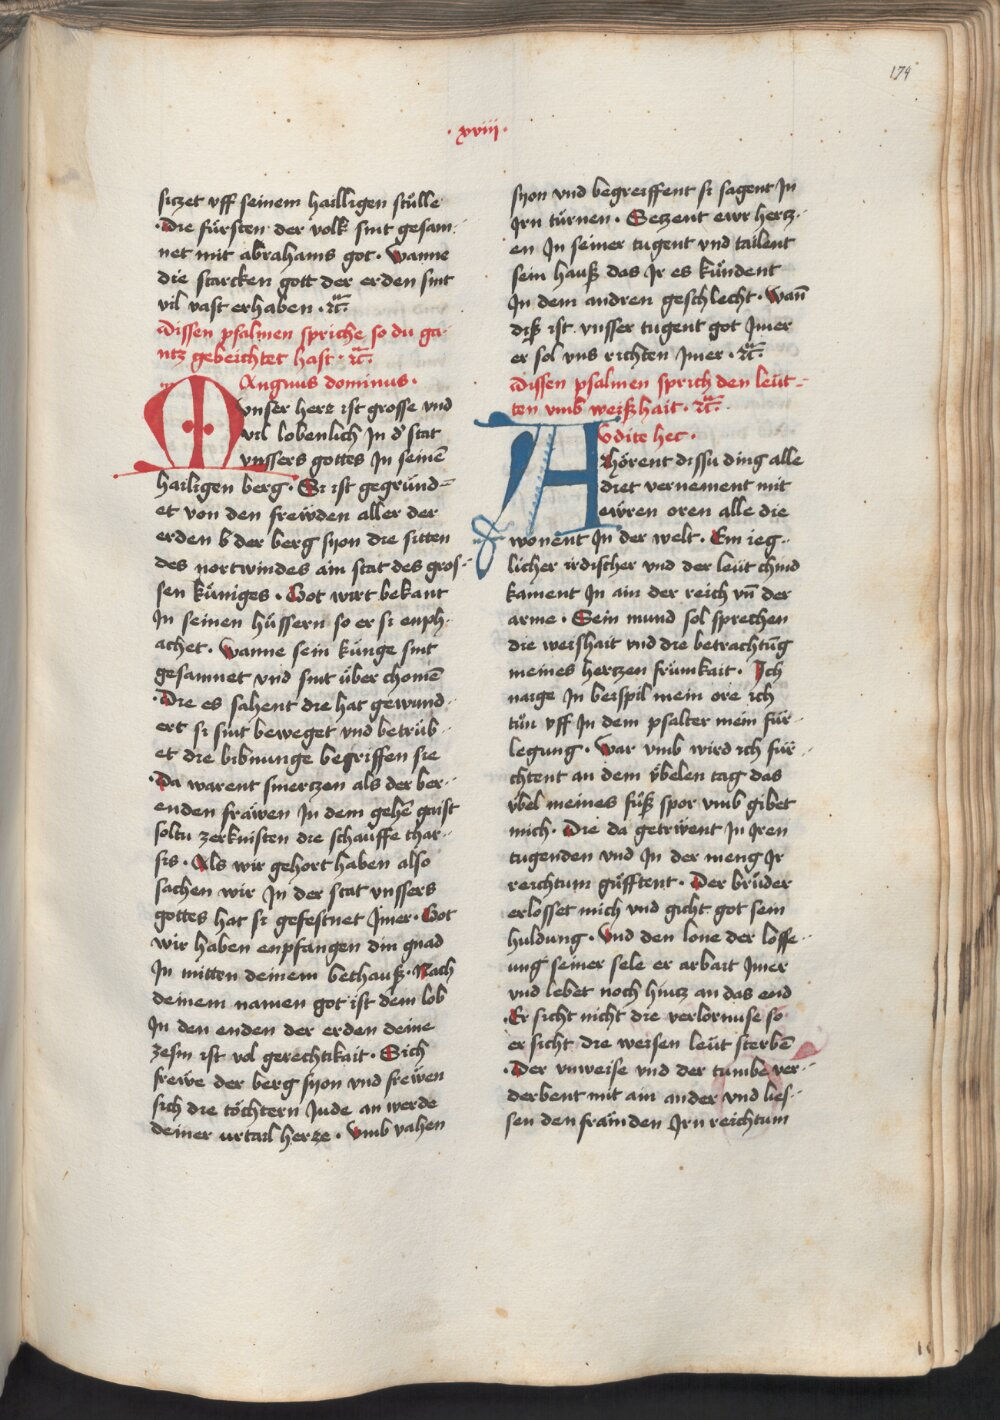 174
·xviii·
sitzet vff seinem hailligen stůlle
·Die fürsten der volk sint gesam-
net mit abrahams got· Wanne
die starcken gott der erden sint
vil vast erhaben· ꝛc̃.
Dissen psalmen spriche so du ga-
ntz gebeichtet hast· ꝛc̃.
Angnus dominus·
M
vnser herr ist grosse vnd
vil lobenlich Jn d' stat
vnssers gottes Jn seinē
hailigen berg· Er ist gegründ=
et von den frewden aller der
erden b der berg syon die sitten
des nortwindes ain stat des gros-
sen küniges· Got wirt bekant
Jn seinen hüssern so er si enph-
achet· Wanne sein künge sint
gesamnet vnd sint über chomē
·Die es sahent die hat gewund-
ert si sint beweget vnd betrüb-
et die bibnunge begriffen sie
·Da warent smertzen als der ber-
enden fräwen Jn dem gehē gaist
soltu zerknisten die schauffe thar-
sis· Als wir gehort haben also
sachen wir Jn der stat vnssers
gottes hat si gefestnet Jmer· Got
wir haben enpfangen din gnad
Jn mitten deinem bethauß· Nach
deinem namen got ist dem lob
Jn den enden der erden deine
zesm ist vol gerechtikait· Sich
frewe der berg syon vnd frewen
sich die töchtern Jude an werde
deiner urtail herre· Vmb vahen
syon vnd begreiffent si sagent Jn
Jrn türnen· Setzent ewr hertz-
en Jn seiner tugent vnd tailent
sein hauß das Jr es kündent
Jn dem andren geschlecht· Wañ
diß ist vnsser tugent got Jmer
er sol vns richten Jmer· ꝛc̃.
Dissen psalmen sprich den leüt-
ten vmb weißhait· ꝛc̃.
Vdite hec·
A
hörent dissu ding alle
diet vernement mit
ewren oren alle die
wonent Jn der welt· Ein ieg-
licher irdischer vnd der leüt chind
kament Jn ain der reich vñ der
arme· Sein mund sol sprechen
die weishait vnd die betrachtūg
meines hertzen frümkait· Ich
naige Jn beispil mein ore ich
tůn vff Jn dem psalter mein für-
legung· War vmb wird ich für-
chtent an dem vbelen tag das
vbel meines fůß spor vmb gibet
mich· Die da getrüwent Jn Jren
tugenden vnd Jn der meng Jr
reichtum güfftent· Der brüder
erlosset mich vnd gicht got sein
huldung· Vnd den lone der losse-
ung seiner sele er arbait Jmer
vnd lebet noch hintz an das end
·Er sicht nicht die verlornuse so
er sicht die weisen leüt sterbē
·Der vnweise vnd der tumbe ver-
derbent mit ain ander vnd lies-
sen den främden Jrn reichtum